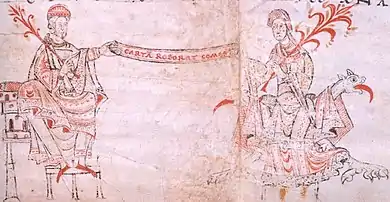 CARTĀ ROBORAT COMES